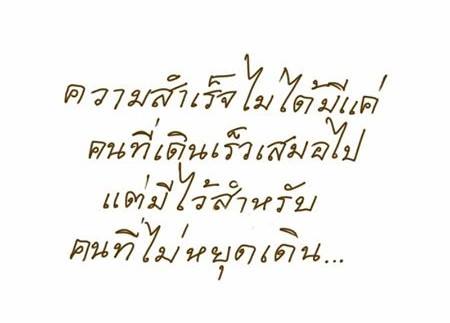 ความสำเร็จไม่ได้มีแค่
คนที่เดินเร็วเสมอไป
แต่มีไว้สำหรับ
คนที่ไม่หยุดเดิน...